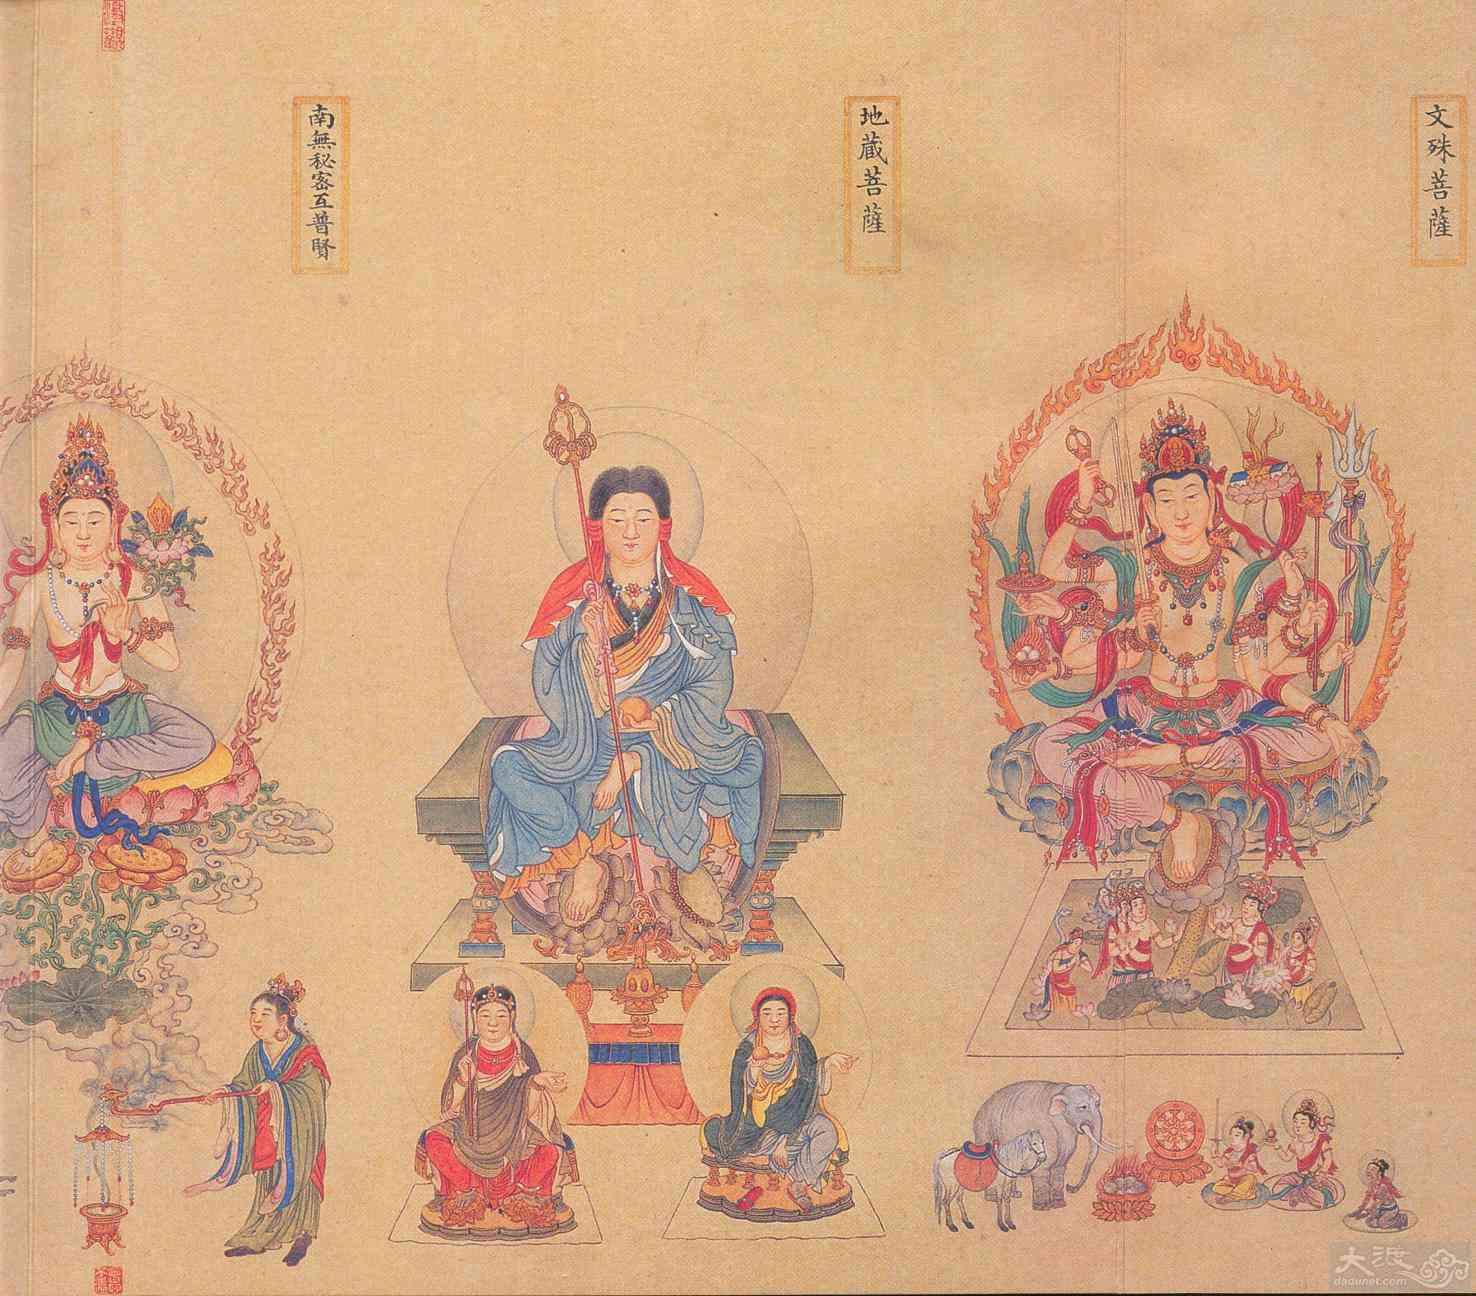 文殊菩薩
地蔵菩薩
南無秘密互普賢
大渡
dadunet.com